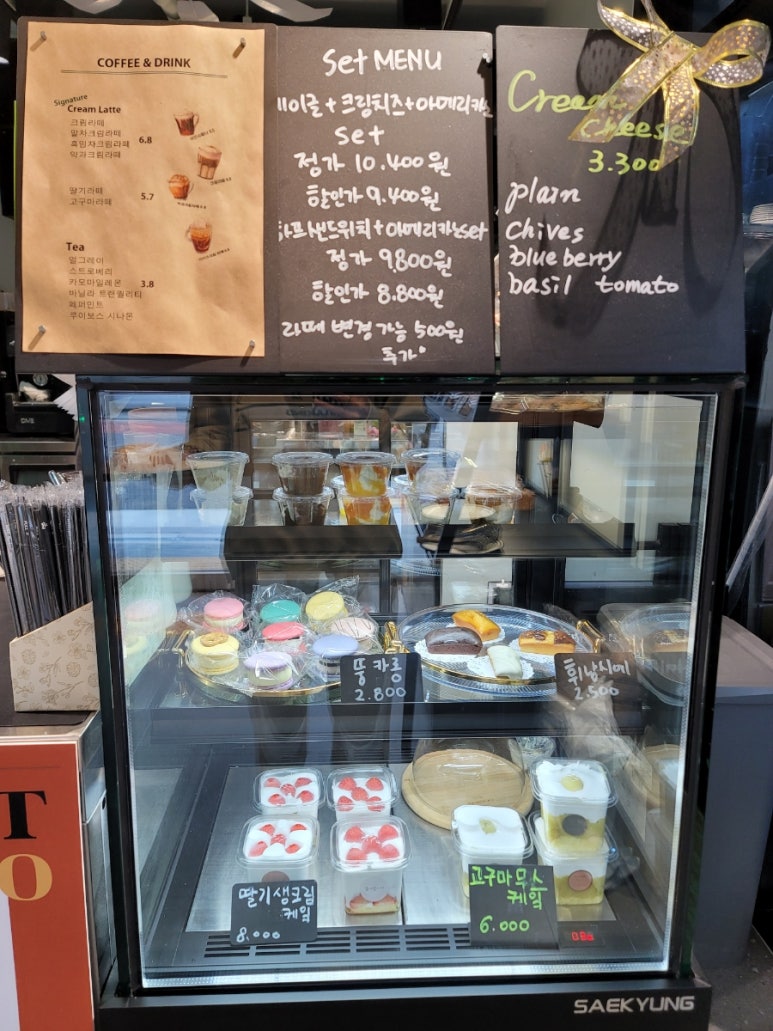 COFFEE & DRINK
Signature
Cream Latte
크림라떼
말차크림라떼
흑임자크림라떼
약과크림라떼
6.8
딸기라떼
고구마라떼
5.7
Tea
얼그레이
스트로베리
카모마일레몬
바닐라 트랜퀼리티
페퍼민트
루이보스 시나몬
3.8
Set MENU
베이글+크림치즈+아메리카노
set
정가 10.400원
할인가 9.400원
하프샌드위치+아메리카노set
정가 9,800원
할인가 8.800원
라떼 변경 가능 500원
추가*
Cream
Cheese
3.300
plain
chives
blueberry
basil tomato
뚱카롱
2.800
휘낭시에
2.500
딸기생크림
케잌
8.000
고구마무스
케잌
6.000
SAEKYUNG
T
O